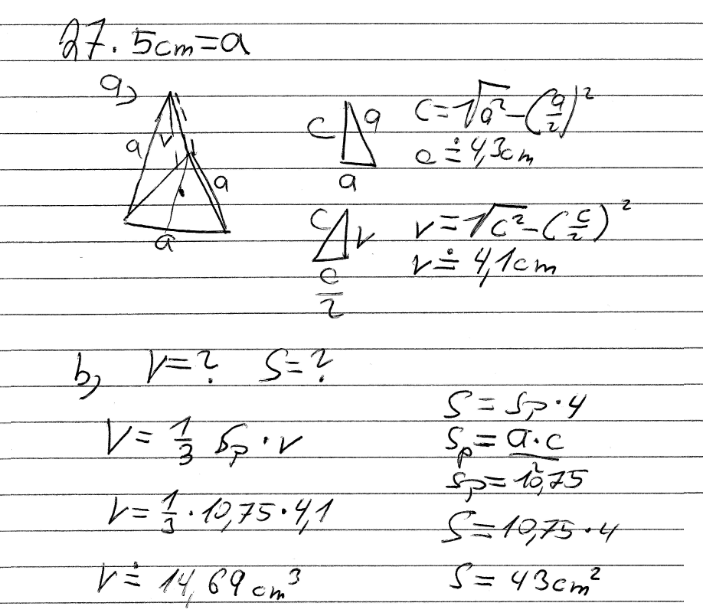 27. 5cm=a
a)
a
v
a
a
c
a
a
c=√a²-(a/2)²
c≐4,3cm
c
v
c/2
v=√c²-(c/2)²
v≐4,1cm
b) V=? S=?
V=1/3 Sp·v
V=1/3·10,75·4,1
V≐14,69cm³
S=Sp·4
Sp=a·c/2
Sp=10,75
S=10,75·4
S=43cm²